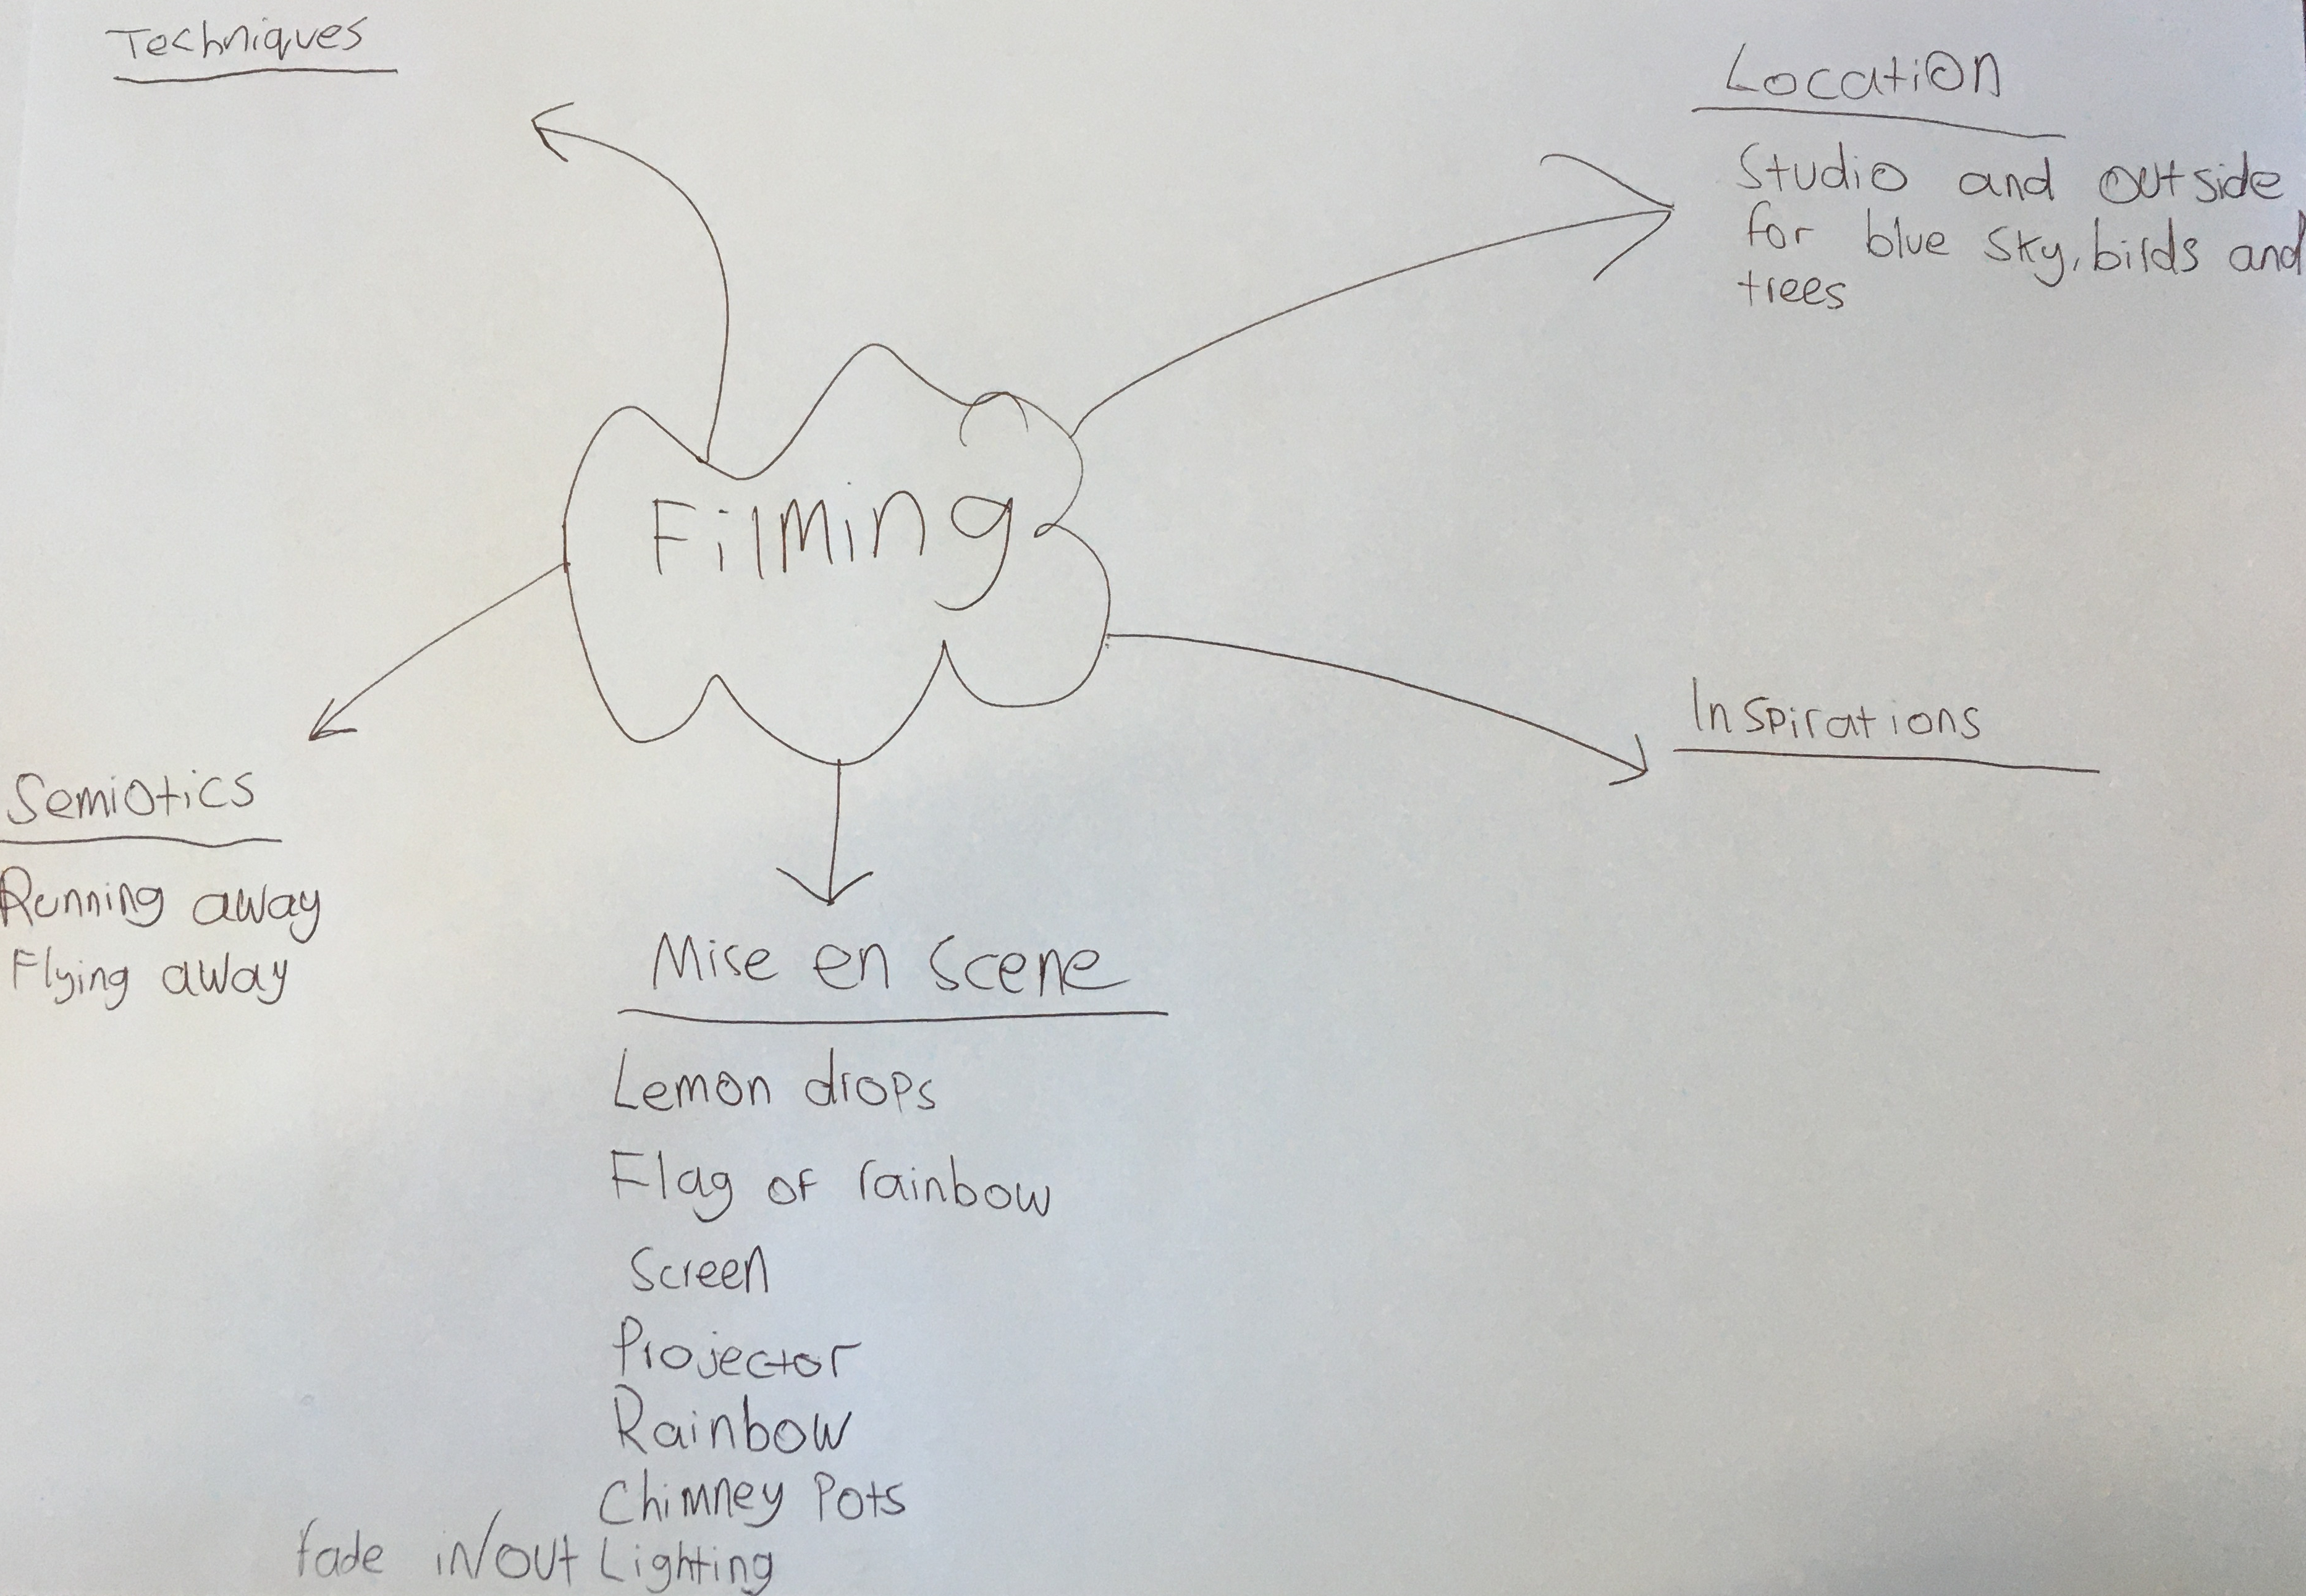 Techniques
Location
Studio and outside
for blue sky, birds and
trees
Filming
Inspirations
Semiotics
Running away
Flying away
Mise en scene
Lemon drops
Flag of rainbow
Screen
Projector
Rainbow
Chimney Pots
fade in/out Lighting